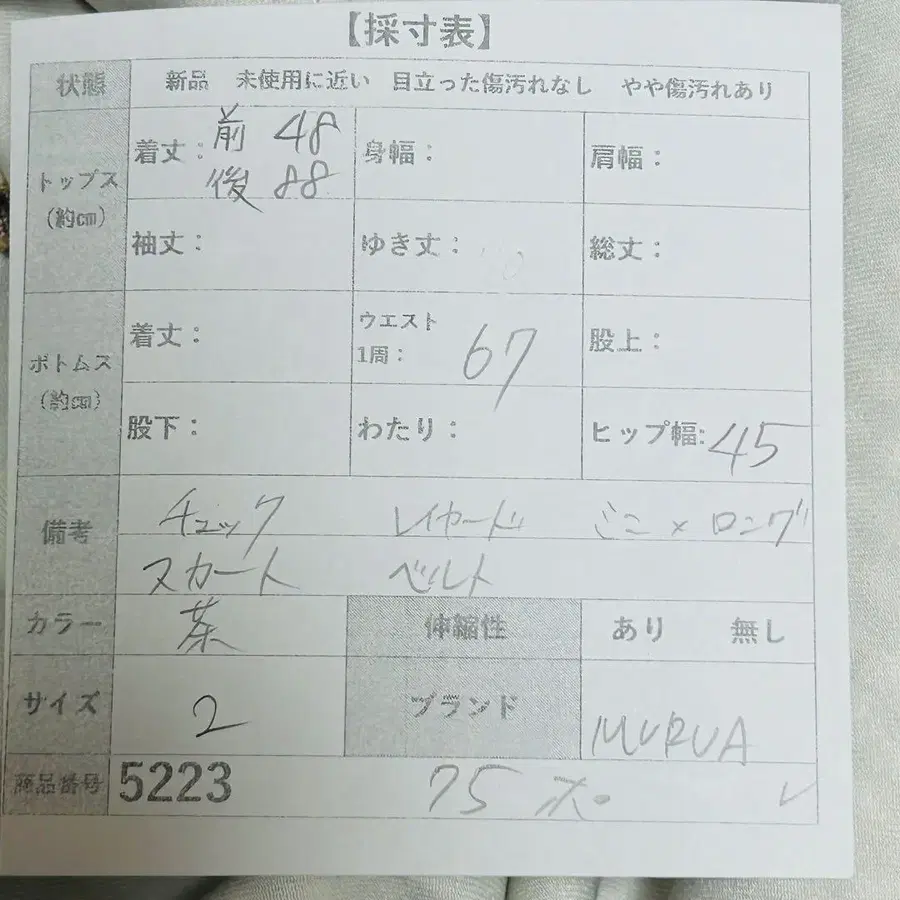 【採寸表】
状態 新品 未使用に近い 目立った傷汚れなし やや傷汚れあり
トップス (約cm)
着丈： 前 48 後 88 身幅： 肩幅：
袖丈： ゆき丈： 総丈：
ボトムス (約cm)
着丈： ウエスト 1周： 67 股上：
股下： わたり： ヒップ幅: 45
備考 チェック レイヤード ミニ×ロング
スカート ベルト
カラー 茶 伸縮性 あり 無し
サイズ 2 ブランド MURUA
商品番号 5223 75